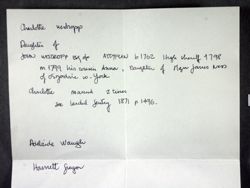 Charlotte Westropp
Daughter of
JOHN WESTROPP Esq of ATTYFLIN b 1762 High Sheriff 1798
m 1799 his cousin Anna, Daughter of Major James Ross
of co. York
Charlotte married 2 times
See Landed Gentry 1871 p. 1496.
Adelaide Waugh
Harriett